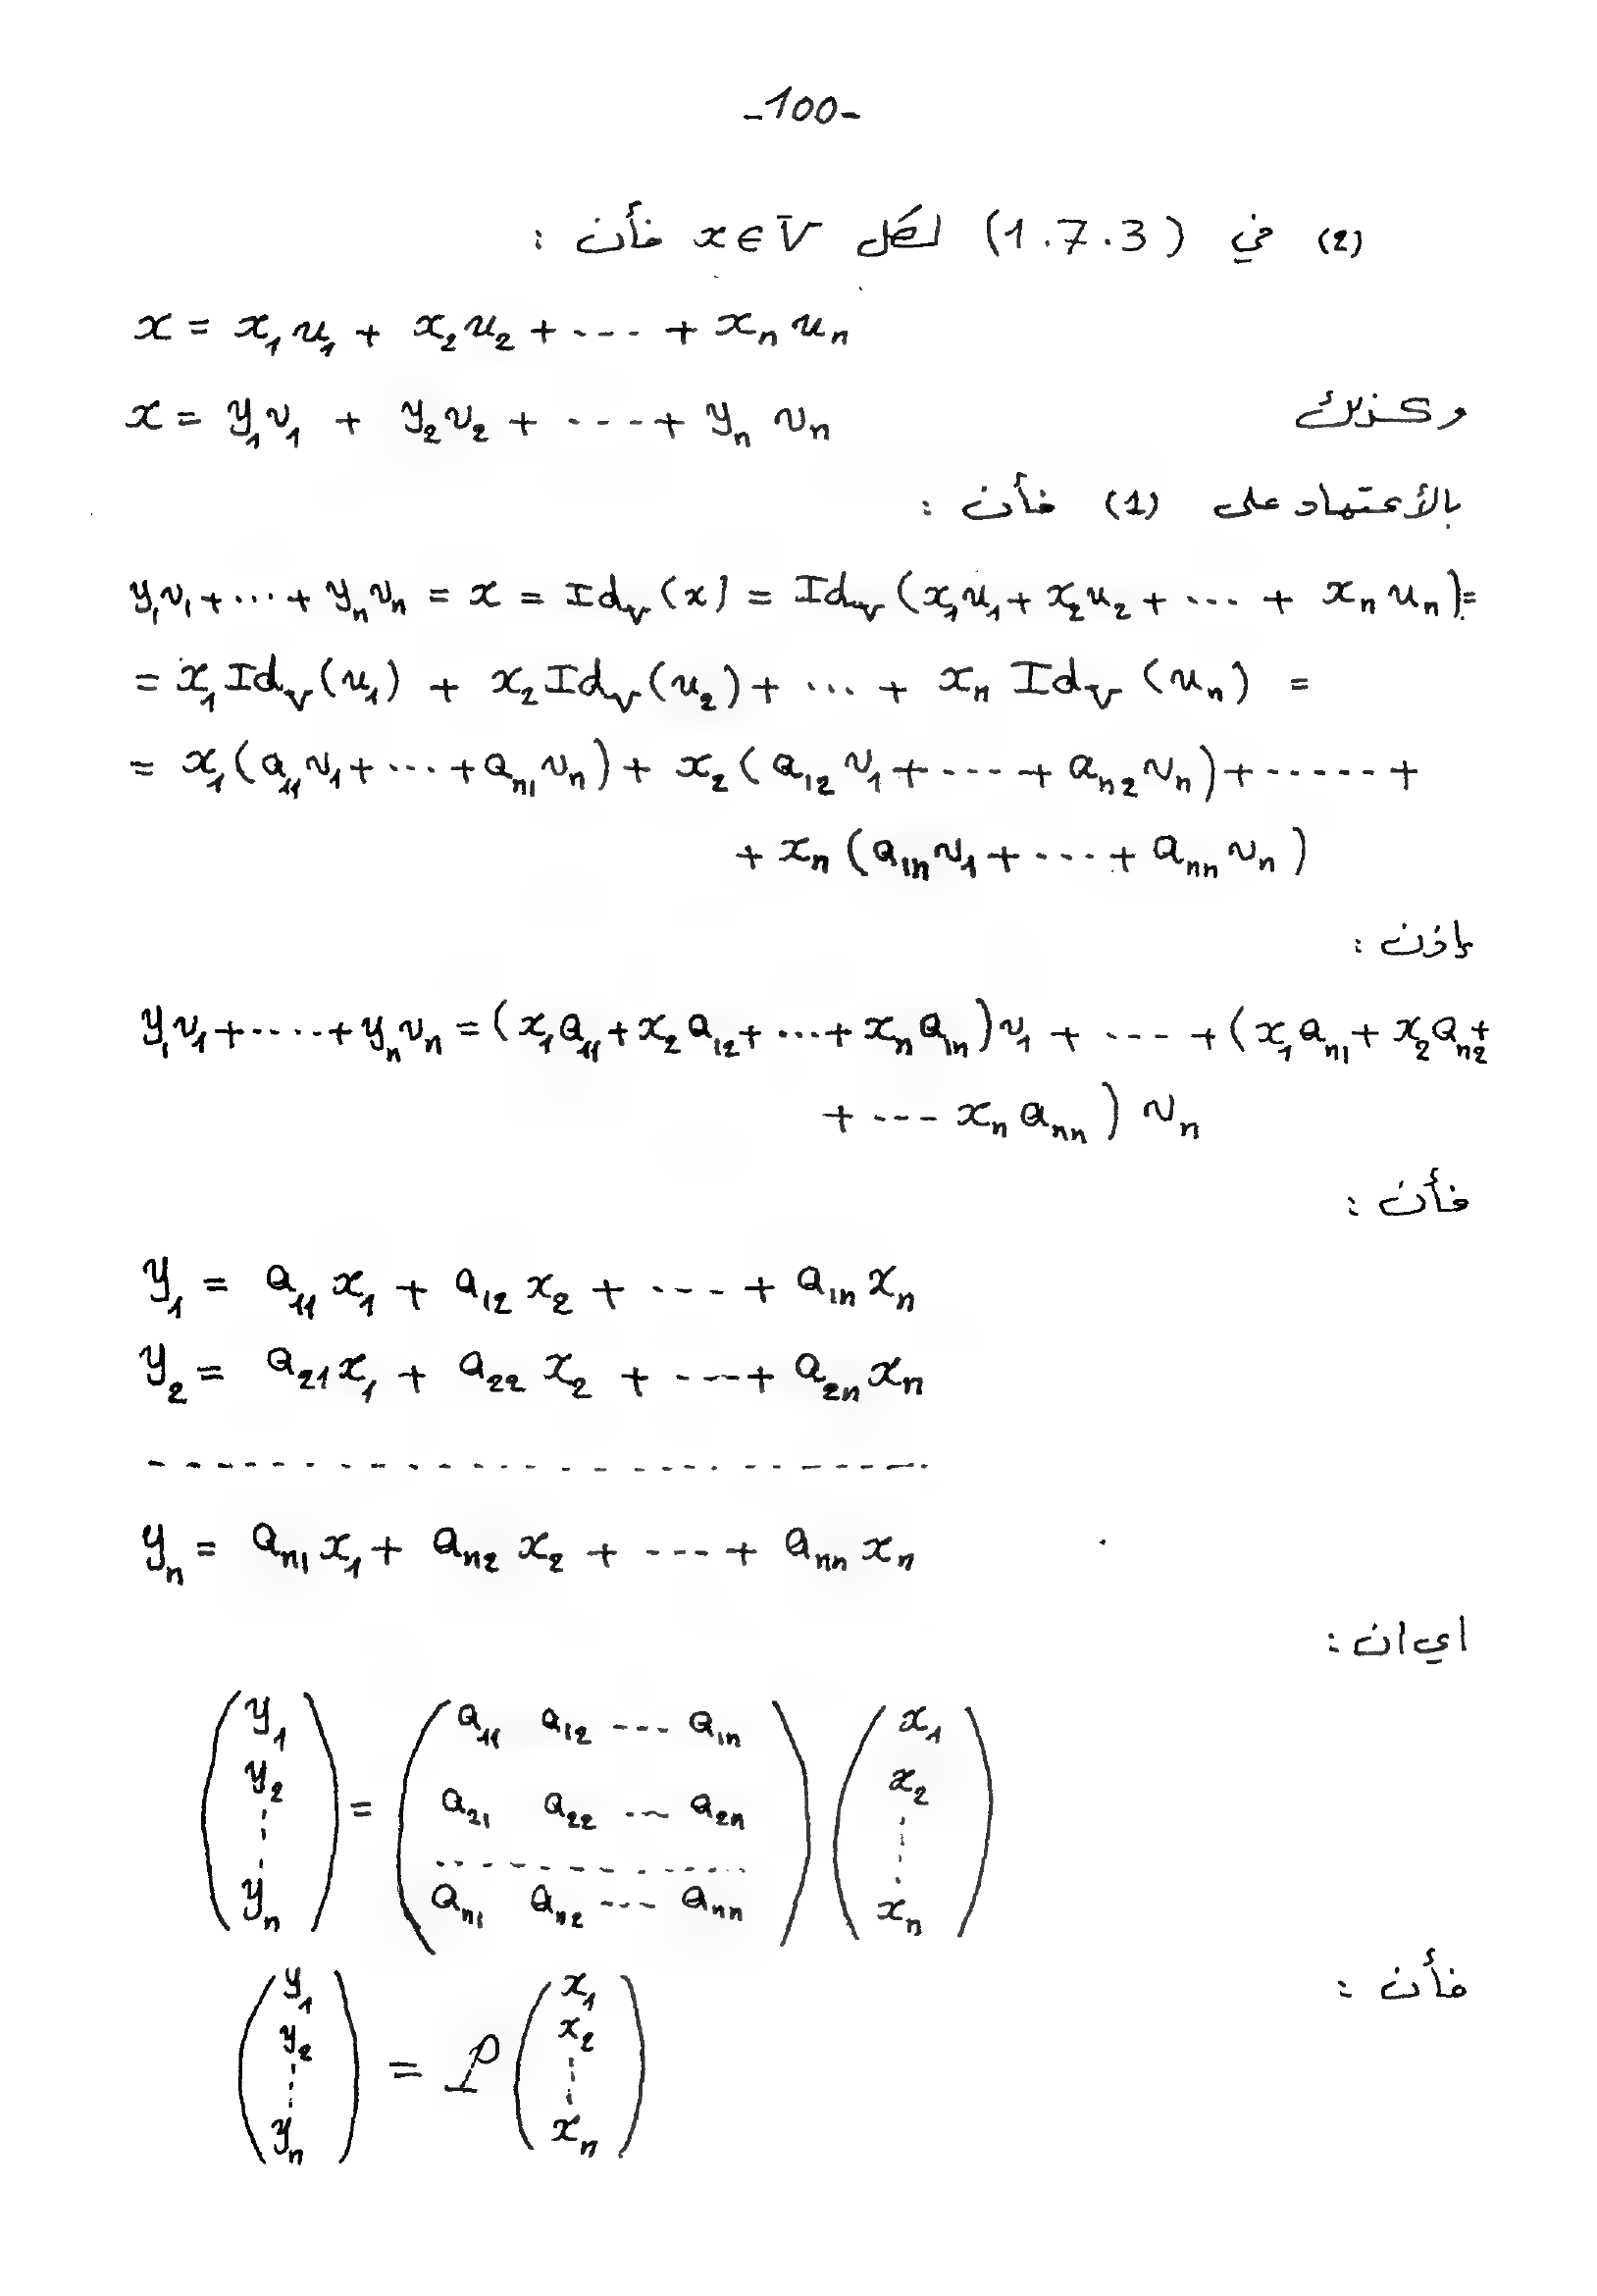 -100-
(2) في (1.7.3) لكل x∈V فأن :
x = x₁u₁ + x₂u₂ + ---- + xₙuₙ
وكذلك x = y₁v₁ + y₂v₂ + ---- + yₙvₙ
بالأعتماد على (1) فأن :
y₁v₁ + ... + yₙvₙ = x = Id_V(x) = Id_V(x₁u₁ + x₂u₂ + ... + xₙuₙ) =
= x₁Id_V(u₁) + x₂Id_V(u₂) + ... + xₙId_V(uₙ) =
= x₁(a₁₁v₁ + ... + aₙ₁vₙ) + x₂(a₁₂v₁ + ---- + aₙ₂vₙ) + ----- +
+ xₙ(a₁ₙv₁ + ---- + aₙₙvₙ)
إذن :
y₁v₁ + ---- + yₙvₙ = (x₁a₁₁ + x₂a₁₂ + ... + xₙa₁ₙ)v₁ + ---- + (x₁aₙ₁ + x₂aₙ₂ +
+ --- xₙaₙₙ) vₙ
فأن :
y₁ = a₁₁x₁ + a₁₂x₂ + ---- + a₁ₙxₙ
y₂ = a₂₁x₁ + a₂₂x₂ + ---- + a₂ₙxₙ
- - - - - - - - - - - - - - - - - - - -
yₙ = aₙ₁x₁ + aₙ₂x₂ + ---- + aₙₙxₙ
اي ان :
(y₁ y₂ ⋮ yₙ) = (a₁₁ a₁₂ --- a₁ₙ
a₂₁ a₂₂ --- a₂ₙ
- - - - - - - - - -
aₙ₁ aₙ₂ --- aₙₙ) (x₁ x₂ ⋮ xₙ)
فأن :
(y₁ y₂ ⋮ yₙ) = P (x₁ x₂ ⋮ xₙ)